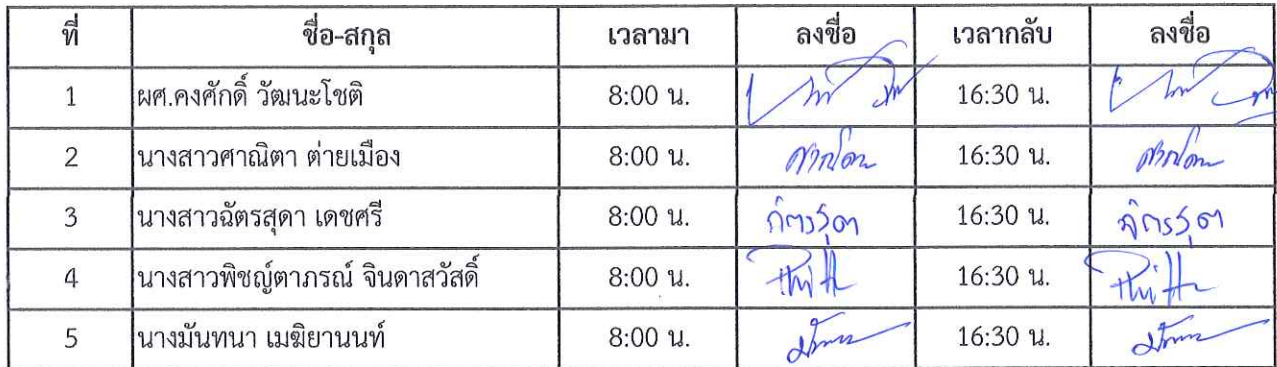 ที่ ชื่อ-สกุล เวลามา ลงชื่อ เวลากลับ ลงชื่อ
1 ผศ.คงศักดิ์ วัฒนะโชติ 8:00 น. 16:30 น.
2 นางสาวศาณิตา ต่ายเมือง 8:00 น. 16:30 น.
3 นางสาวฉัตรสุดา เดชศรี 8:00 น. ฉัตรสุดา 16:30 น. ฉัตรสุดา
4 นางสาวพิชญ์ตาภรณ์ จินดาสวัสดิ์ 8:00 น. 16:30 น.
5 นางมันทนา เมฆิยานนท์ 8:00 น. 16:30 น.